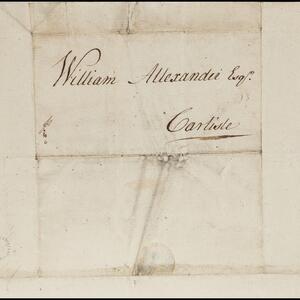 William Allexander Esqr.
Carlisle